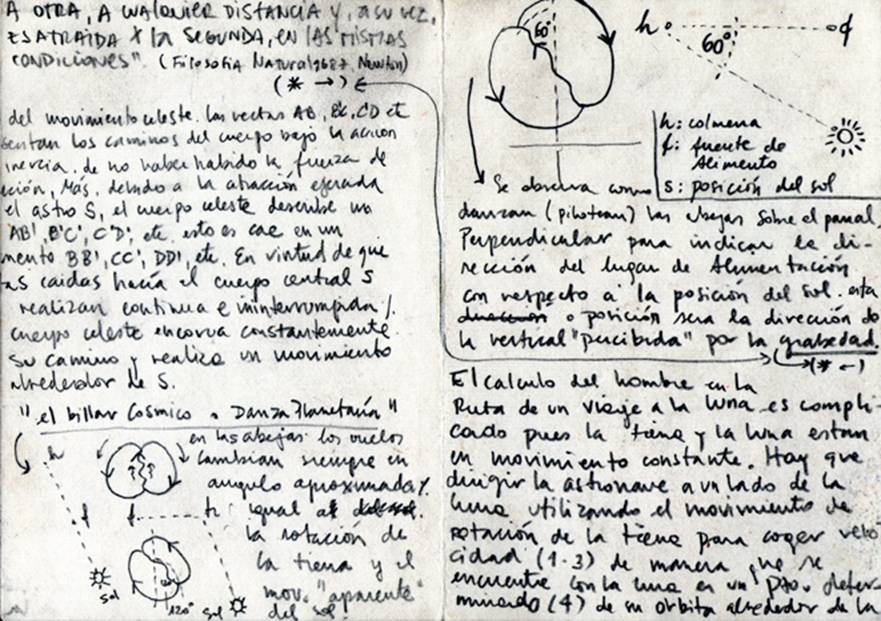 A OTRA, A CUALQUIER DISTANCIA Y, A SU VEZ,
ES ATRAIDA X la SEGUNDA, EN LAS MISMAS
CONDICIONES". (Filosofia Natural 1687 Newton)
(* →)
del movimiento celeste. las vectas AB, BC, CD etc
sentan los caminos del cuerpo bajo la acción
inercia. de no haber habido la fuerza de
ción, Más, debido a la atracción ejercida
el astro S, el cuerpo celeste describe un
AB', B'C', C'D', etc, esto es cae en un
mento BB', CC', DD', etc. En virtud de que
as caidas hacia el cuerpo central S
realizan continua e ininterrumpida/.
cuerpo celeste encorva constantemente
su camino y realiza un movimiento
alrededor de S.
"el billar Cósmico o Danza Planetaria"
en las abejas los vuelos
cambian siempre en
angulo aproximada/.
igual al
la rotación de
la tierra y el
mov. "aparente"
del sol.
h
f f h
sol
120° sol
60°
h f
60°
h: colmena
f: fuente de
Alimento
s: posición del sol
Se observa como
danzan (pilotean) las abejas sobre el panal.
Perpendicular para indicar la di-
rección del lugar de Alimentación
con respecto a la posición del sol. esta
dirección o posición sera la dirección de
la vertical "percibida" por la grabedad.
(* ←)
El calculo del hombre en la
Ruta de un viaje a la luna es compli-
cado pues la tierra y la luna estan
en movimiento constante. Hay que
dirigir la astronave a un lado de la
luna utilizando el movimiento de
rotación de la tierra para coger velo
cidad (1-3) de manera que se
encuentre con la luna en un pto. deter
minado (4) de su orbita alrededor de la